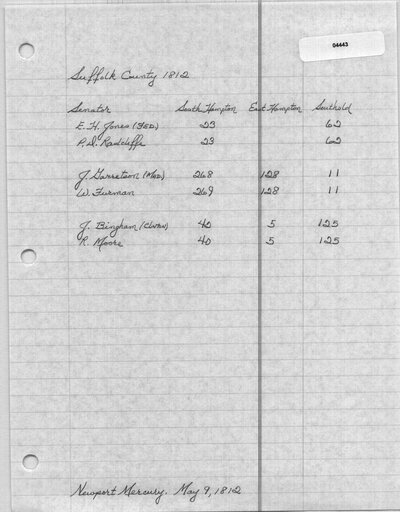 04443
Suffolk County 1812
Senator South Hampton East Hampton Southold
E. H. Jones (FED) 23 62
P. S. Radcliffe 23 62
J. Garretson (FED) 268 128 11
W. Furman 269 128 11
J. Bingham (Clinton) 40 5 125
R. Moore 40 5 125
Newport Mercury. May 9, 1812